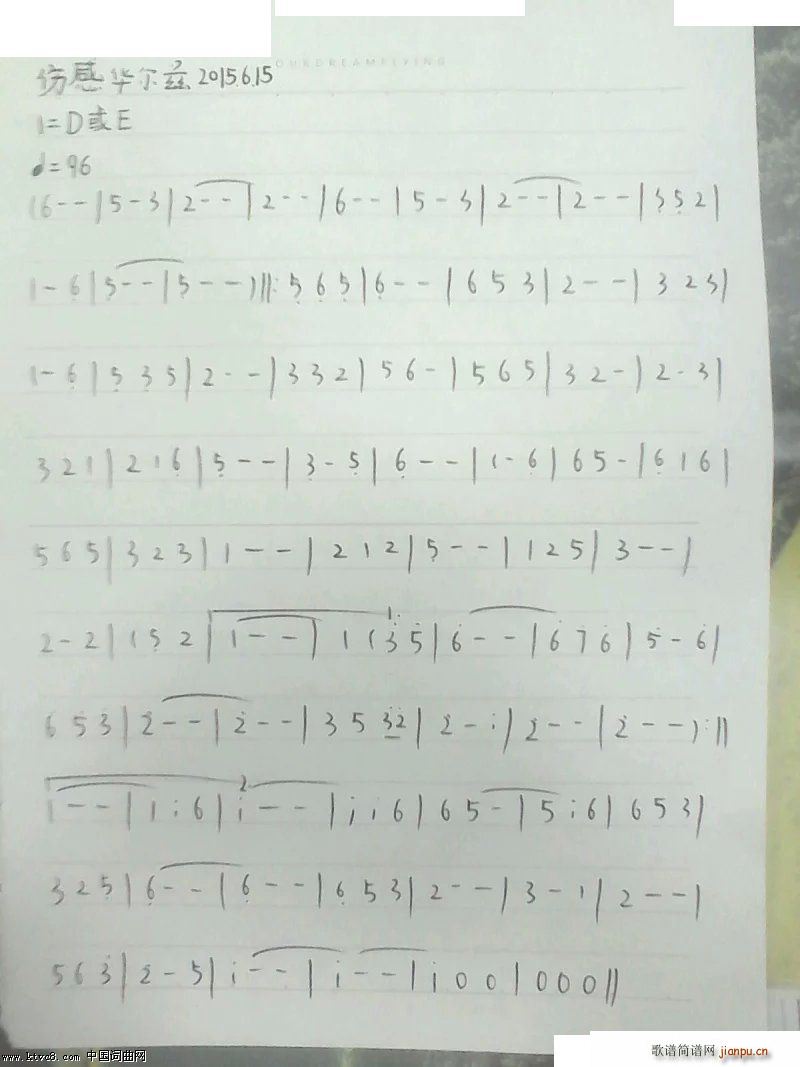 OURDREAMFLYING
伤感华尔兹 2015.6.15
1=D或E
♩=96
(6 - - | 5 - 3 | 2 - - | 2 - - | 6 - - | 5 - 3 | 2 - - | 2 - - | 3̣ 5̣ 2 |
1 - 6̣ | 5̣ - - | 5̣ - - ) ‖: 5̣ 6̣ 5̣ | 6̣ - - | 6 5 3 | 2 - - | 3 2 3 |
1 - 6̣ | 5̣ 3 5 | 2 - - | 3 3 2 | 5 6 - | 5 6 5 | 3 2 - | 2 - 3 |
3 2 1 | 2 1 6̣ | 5̣ - - | 3̣ - 5̣ | 6̣ - - | 1 - 6̣ | 6 5 - | 6̣ 1 6 |
5 6 5 | 3 2 3 | 1 - - | 2 1 2 | 5 - - | 1 2 5 | 3 - - |
1.
2 - 2 | 1 5 2 | 1 - - | 1 (3̇ 5̇ | 6̇ - - | 6̇ 7̇ 6̇ | 5̇ - 6̇ |
6 5̇ 3̇ | 2̇ - - | 2̇ - - | 3 5 3̇2̇ | 2̇ - i | 2̇ - - | 2̇ - - ) :‖
2
1 - - | 1 i 6 | i - - | i i 6 | 6 5 - | 5 i 6 | 6 5 3 |
3 2 5̣ | 6̣ - - | 6̣ - - | 6̣ 5 3 | 2 - - | 3 - 1 | 2 - - |
5 6 3̇ | 2̇ - 5 | i - - | i - - | i 0 0 | 0 0 0 ‖
www.ktvc8.com 中国词曲网
歌谱简谱网 jianpu.cn